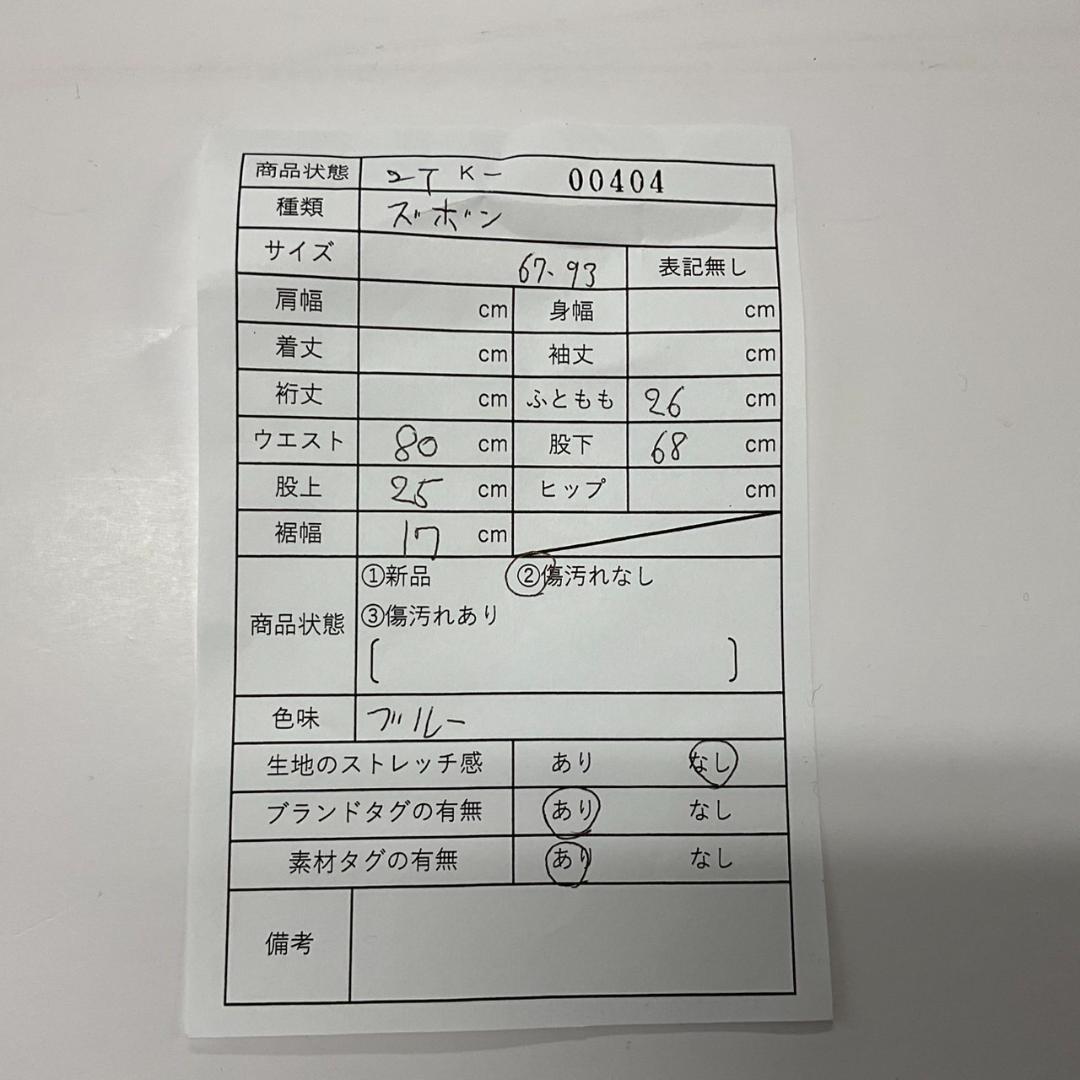 商品状態 2T K- 00404
種類 ズボン
サイズ 67、93 表記無し
肩幅 cm 身幅 cm
着丈 cm 袖丈 cm
裄丈 cm ふともも 26 cm
ウエスト 80 cm 股下 68 cm
股上 25 cm ヒップ cm
裾幅 17 cm
①新品 ②傷汚れなし
③傷汚れあり
商品状態 [ ]
色味 ブルー
生地のストレッチ感 あり なし
ブランドタグの有無 あり なし
素材タグの有無 あり なし
備考